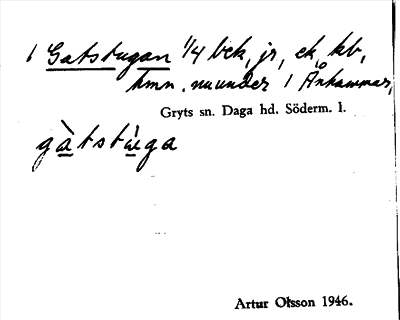 1 Gatstugan 1/4 bek, jr, ek, kb,
hmn. nuunder 1 Ånhammar,
Gryts sn. Daga hd. Söderm. l.
gàtstùga
Artur Olsson 1946.